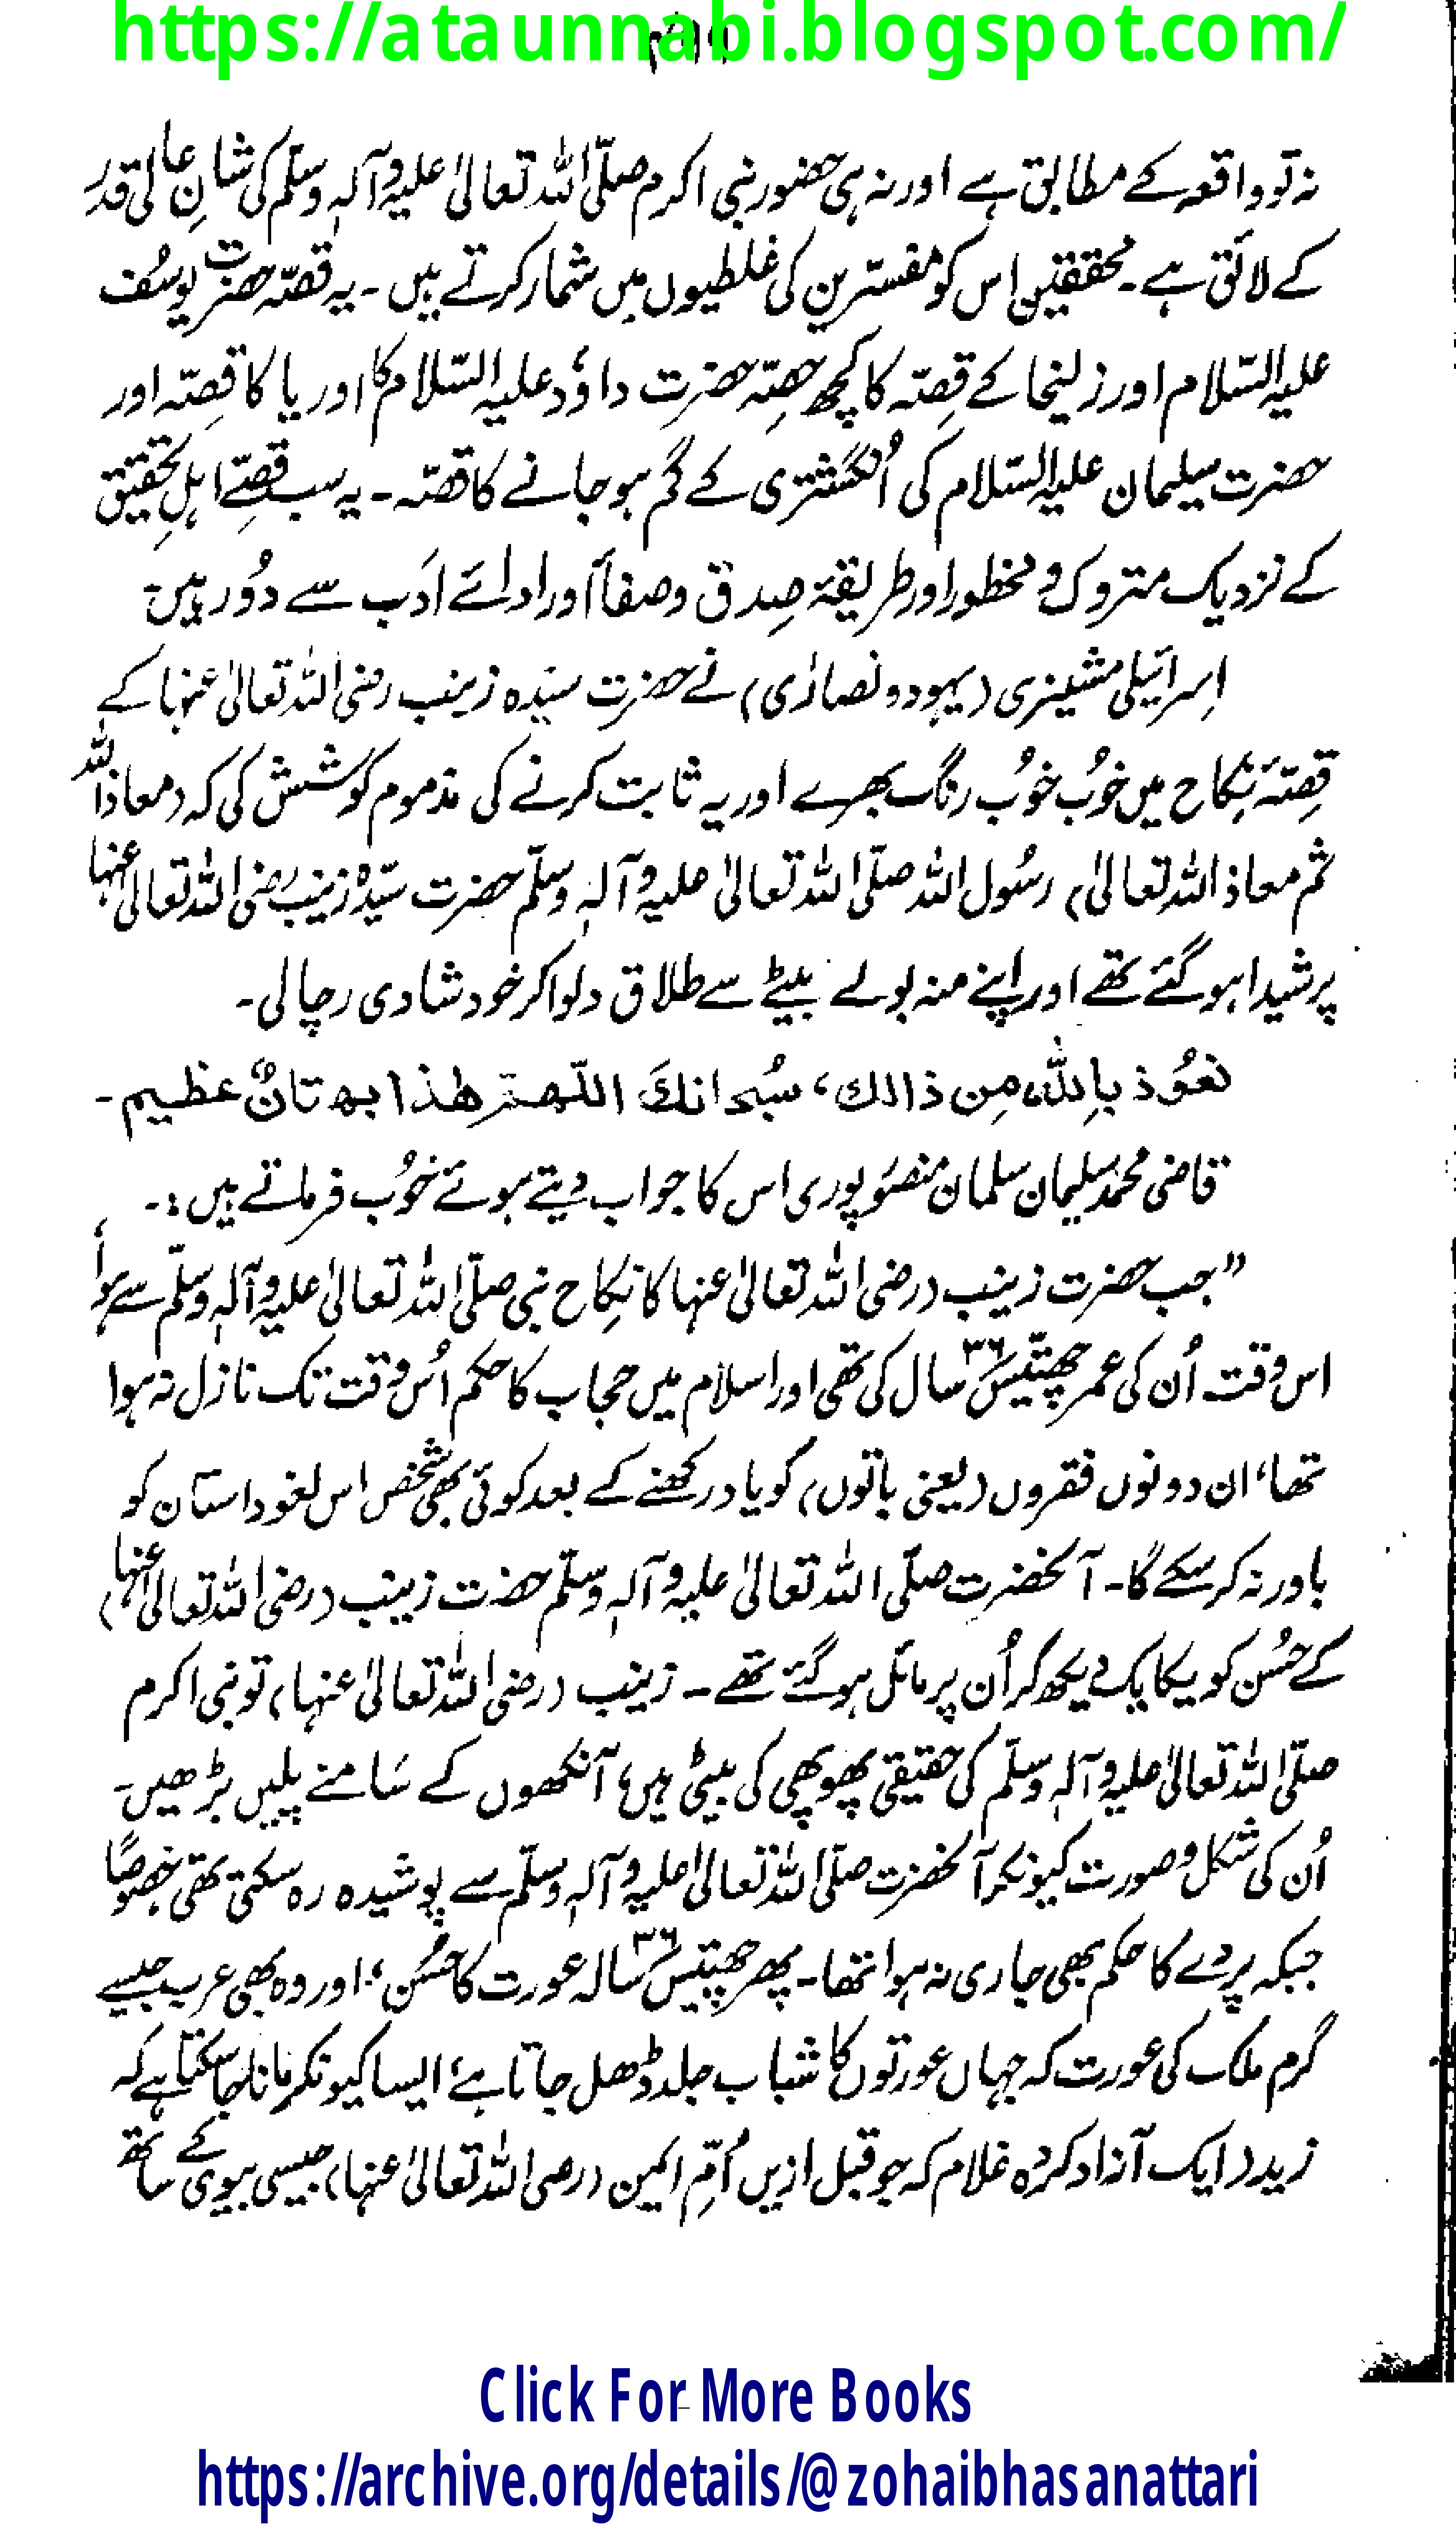 https://ataunnabi.blogspot.com/
نہ تو واقعہ کے مطابق ہے اور نہ ہی حضور نبی اکرم صلّی اللہ تعالیٰ علیہ وآلہٖ وسلّم کی شانِ عالی قدر
کے لائق ہے۔ محققین اس کو مفسّرین کی غلطیوں میں شمار کرتے ہیں۔ یہ قصّہ حضرت یوسُف
علیہ السّلام اور زلیخا کے قصّہ کا کچھ حصّہ حضرت داوٗد علیہ السّلام کا اوریا کا قصّہ اور
حضرت سیلمان علیہ السّلام کی اُنگشتری کے گم ہو جانے کا قصّہ۔ یہ سب قصّے اہلِ تحقیق
کے نزدیک متروک و محظور اور طریقۂ صِدق وصفا اور ادائے ادَب سے دُور ہیں۔
اِسرائیلی مشینری (یہود و نصارٰی) نے حضرت سیّدہ زینب رضی اللہ تعالیٰ عنہا کے
قِصّۂ نِکاح میں خوُب خوُب رنگ بھرے اور یہ ثابت کرنے کی مذموم کوشش کی کہ (معاذ اللہ
ثم معاذ اللہ تعالیٰ) رسُول اللہ صلّی اللہ تعالیٰ علیہ وآلہٖ وسلّم حضرت سیّدہ زینب رضی اللہ تعالیٰ عنہا
پر شیدا ہو گئے تھے اور اپنے منہ بولے بیٹے سے طلاق دلوا کر خود شادی رچا لی۔
نعوُذ باِللہ مِن ذالك، سُبحانكَ اللّهمّ هٰذا بهتانٌ عظیم۔
قاضی محمّد سلیمان سلمان منصوُر پوری اس کا جواب دیتے ہوئے خوُب فرماتے ہیں :۔
”جب حضرت زینب (رضی اللہ تعالیٰ عنہا کا نکِاح نبی صلّی اللہ تعالیٰ علیہ وآلہٖ وسلّم سے ہوا،
اس وقت اُن کی عمر چھتّیس ۳۶ سال کی تھی اور اسلام میں حجاب کا حکم اُس وقت تک نازل نہ ہوا
تھا، ان دونوں فقروں (یعنی باتوں) کو یاد رکھنے کے بعد کوئی بھی شخص اس لغو داستان کو
باور نہ کر سکے گا۔ آنحضرت صلّی اللہ تعالیٰ علیہ وآلہٖ وسلّم حضرت زینب (رضی اللہ تعالیٰ عنہا)
کے حسُن کو یکایک دیکھ کر اُن پر مائل ہو گئے تھے۔ زینب (رضی اللہ تعالیٰ عنہا) تو نبی اکرم
صلّی اللہ تعالیٰ علیہ وآلہٖ وسلّم کی حقیقی پھوپھی کی بیٹی ہیں، آنکھوں کے سَامنے پلیں بڑھیں۔
اُن کی شکل و صورت کیونکر آنحضرت صلّی اللہ تعالیٰ علیہ وآلہٖ وسلّم سے پوشیدہ رہ سکتی تھی خصوصًا
جبکہ پردے کا حکم بھی جاری نہ ہوا تھا۔ پھر چھتیس ۳۶ سالہ عورت کا حُسُن، اور وہ بھی عرب جیسے
گرم ملک کی عورت کہ جہاں عورتوں کا شباب جلد ڈھل جاتا ہے، ایسا کیونکر مانا جا سکتا ہے کہ
زید (ایک آزاد کردہ غلام کہ جو قبل ازیں اُمِّ ایمن (رضی اللہ تعالیٰ عنہا) جیسی بیوی کے ساتھ
Click For More Books
https://archive.org/details/@zohaibhasanattari